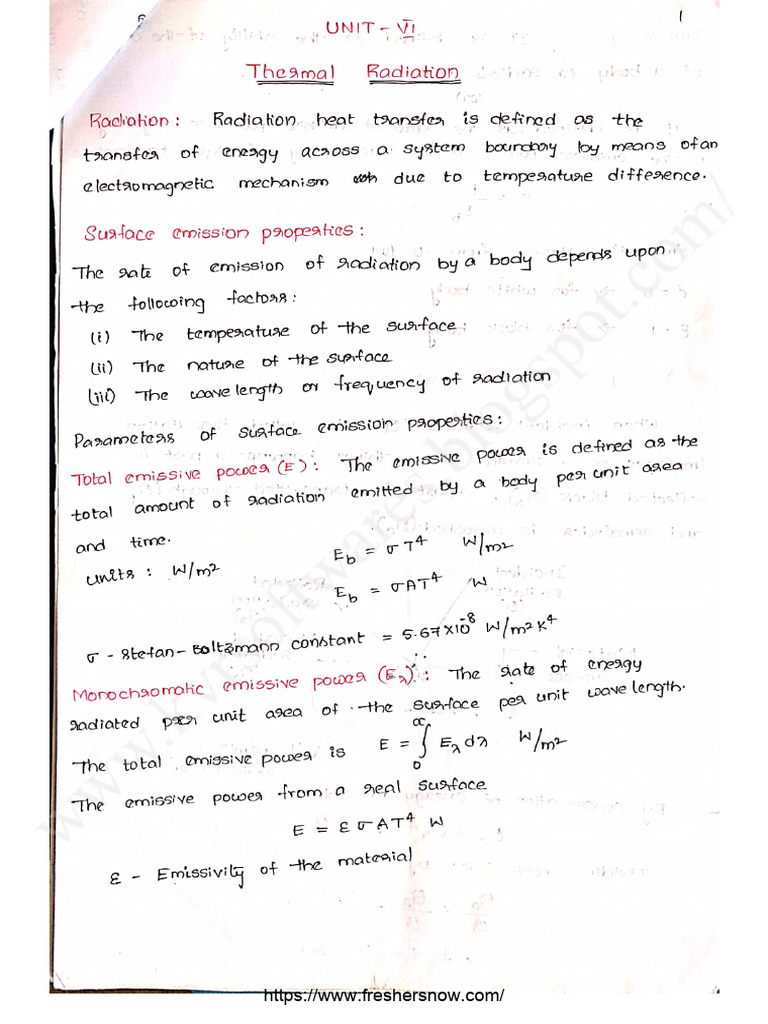 UNIT - VI
1
Thermal Radiation
Radiation : Radiation heat transfer is defined as the
transfer of energy across a system boundary by means of an
electromagnetic mechanism due to temperature difference.
Surface emission properties :
The rate of emission of radiation by a body depends upon
the following factors :
(i) The temperature of the surface.
(ii) The nature of the surface
(iii) The wave length or frequency of radiation
Parameters of surface emission properties :
Total emissive power (E) : The emissive power is defined as the
total amount of radiation emitted by a body per unit area
and time.
units : W/m²
E_b = σT⁴ W/m²
E_b = σAT⁴ W
σ - Stefan - Boltzmann constant = 5.67×10⁻⁸ W/m²K⁴
Monochromatic emissive power (E_λ) : The rate of energy
radiated per unit area of the surface per unit wave length.
The total emissive power is E = ∫₀^∞ E_λ dλ W/m²
The emissive power from a real surface
E = εσAT⁴ W
ε - Emissivity of the material
www.kvrsoftwares.blogspot.com/
https://www.freshersnow.com/